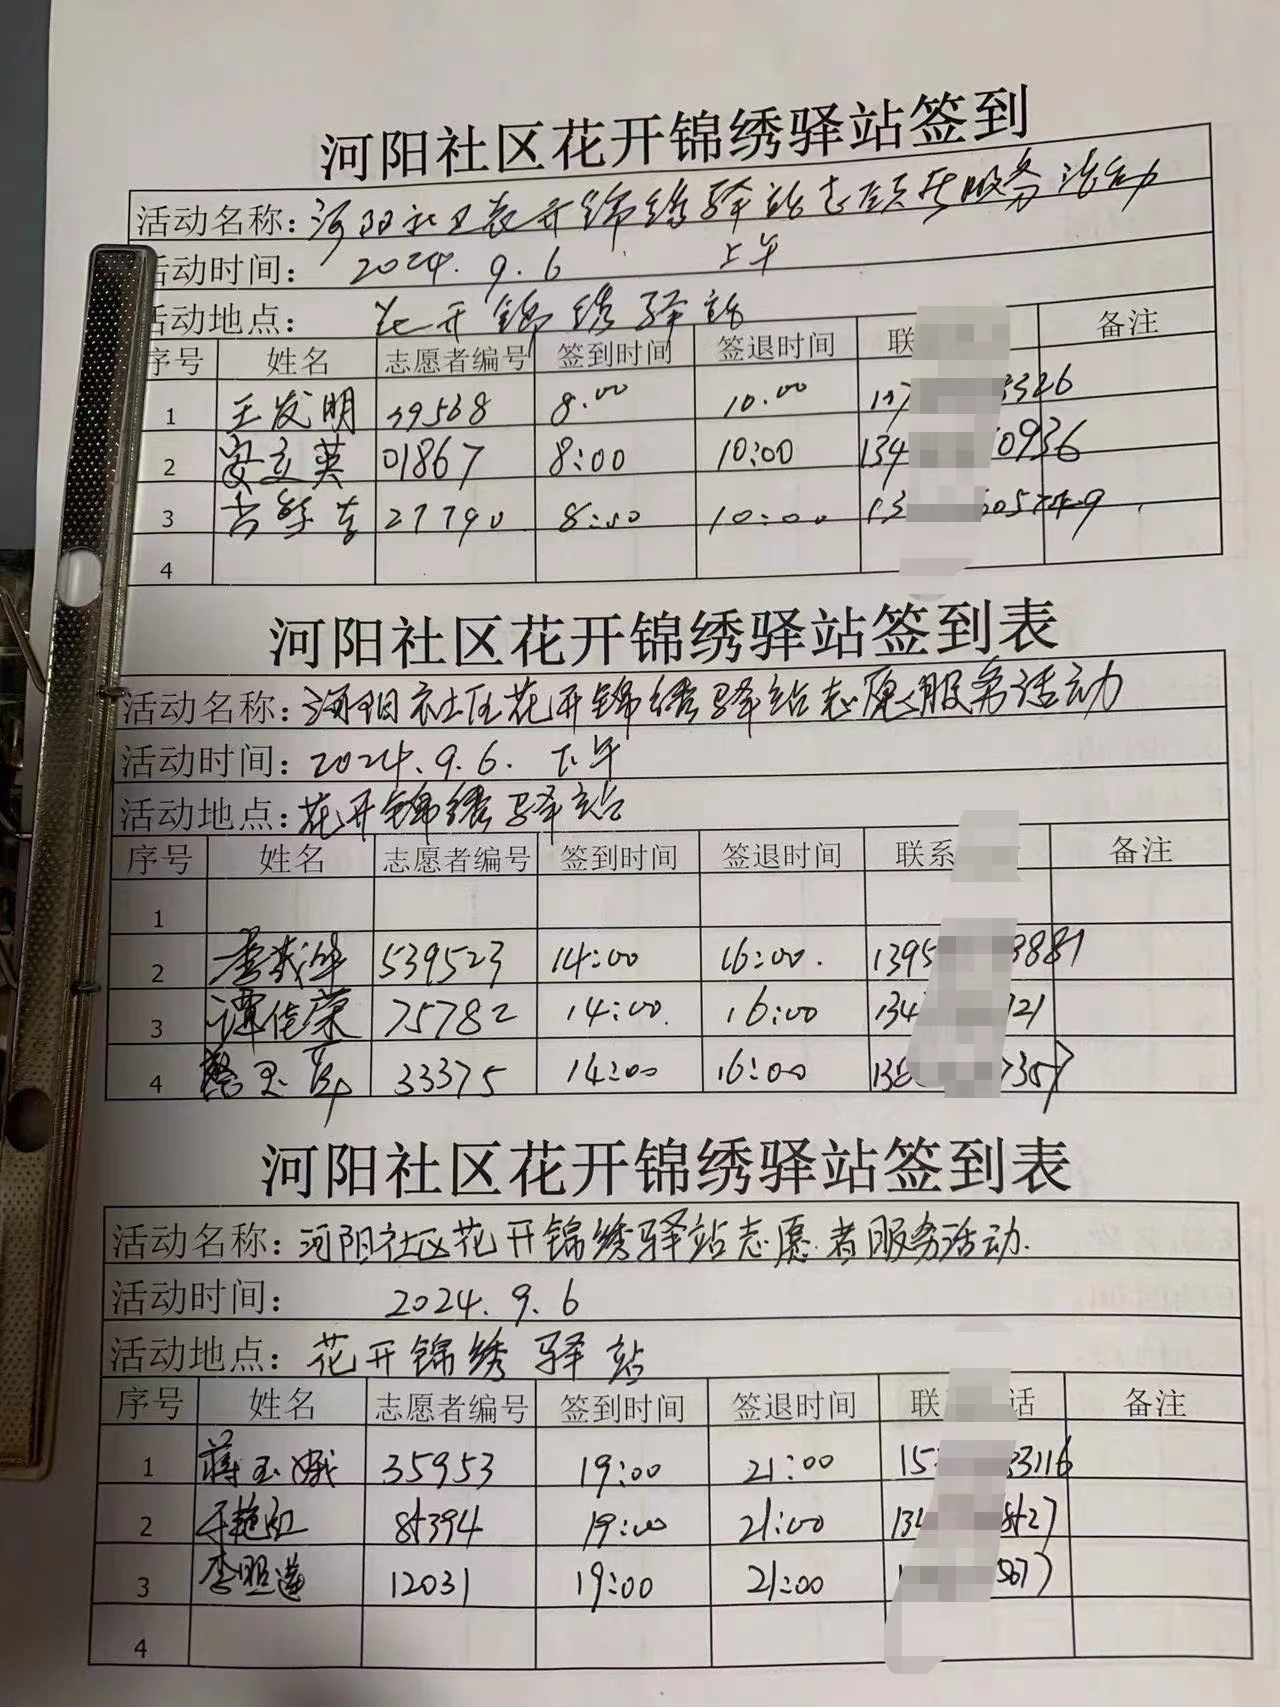 河阳社区花开锦绣驿站签到
活动名称：河阳社区花开锦绣驿站志愿者服务活动
活动时间： 2024.9.6 上午
活动地点： 花开锦绣驿站
序号 姓名 志愿者编号 签到时间 签退时间 联 备注
1 王发明 39568 8:00 10:00 3326
2 安立英 01867 8:00 10:00 134 0936
3 27790 8:00 10:00 13
4
河阳社区花开锦绣驿站签到表
活动名称：河阳社区花开锦绣驿站志愿服务活动
活动时间：2024.9.6. 下午
活动地点：花开锦绣驿站
序号 姓名 志愿者编号 签到时间 签退时间 联系 备注
1
2 539523 14:00 16:00. 1395 3881
3 谭佳荣 75782 14:00 16:00 134 121
4 33375 14:00 16:00 7357
河阳社区花开锦绣驿站签到表
活动名称：河阳社区花开锦绣驿站志愿者服务活动.
活动时间： 2024.9.6
活动地点：花开锦绣驿站
序号 姓名 志愿者编号 签到时间 签退时间 联 话 备注
1 蒋玉娥 35953 19:00 21:00 15 33116
2 于艳红 85394 19:00 21:00 134 8527
3 李明莲 12031 19:00 21:00 1 5677
4